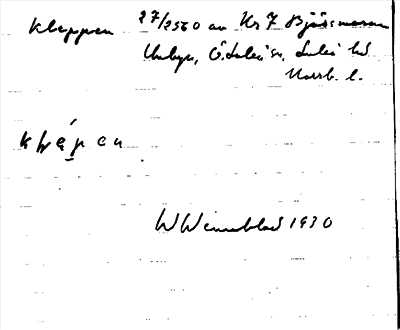 Kleppen 27/2560 av Hr J Björsmaran
Unbyn, Ö. Luleå sn. Luleå hd
Norrb. l.
K l e̱ p e n
W Wennblad 1930